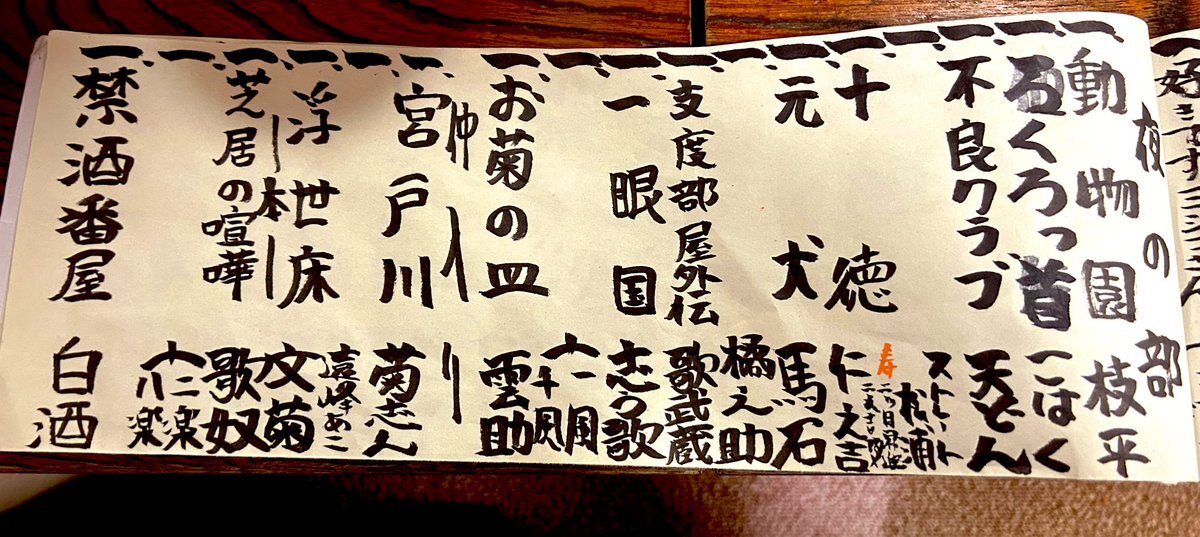 夜の部
一、動物園 枝平
一、ろくろっ首 こはく
一、不良クラブ 天どん
一、ストレート松浦
寿
一、十徳 仁之吉
一、元犬 馬石
一、橘之助
一、支度部屋外伝 歌武蔵
一、一眼国 志う歌
一、お菊の皿 雲助
仲入り
一、宮戸川 菊志ん
一、遠峰あこ
一、浮世床 文菊
―本―
一、芝居の喧嘩 歌奴
一、二楽
一、禁酒番屋 白酒